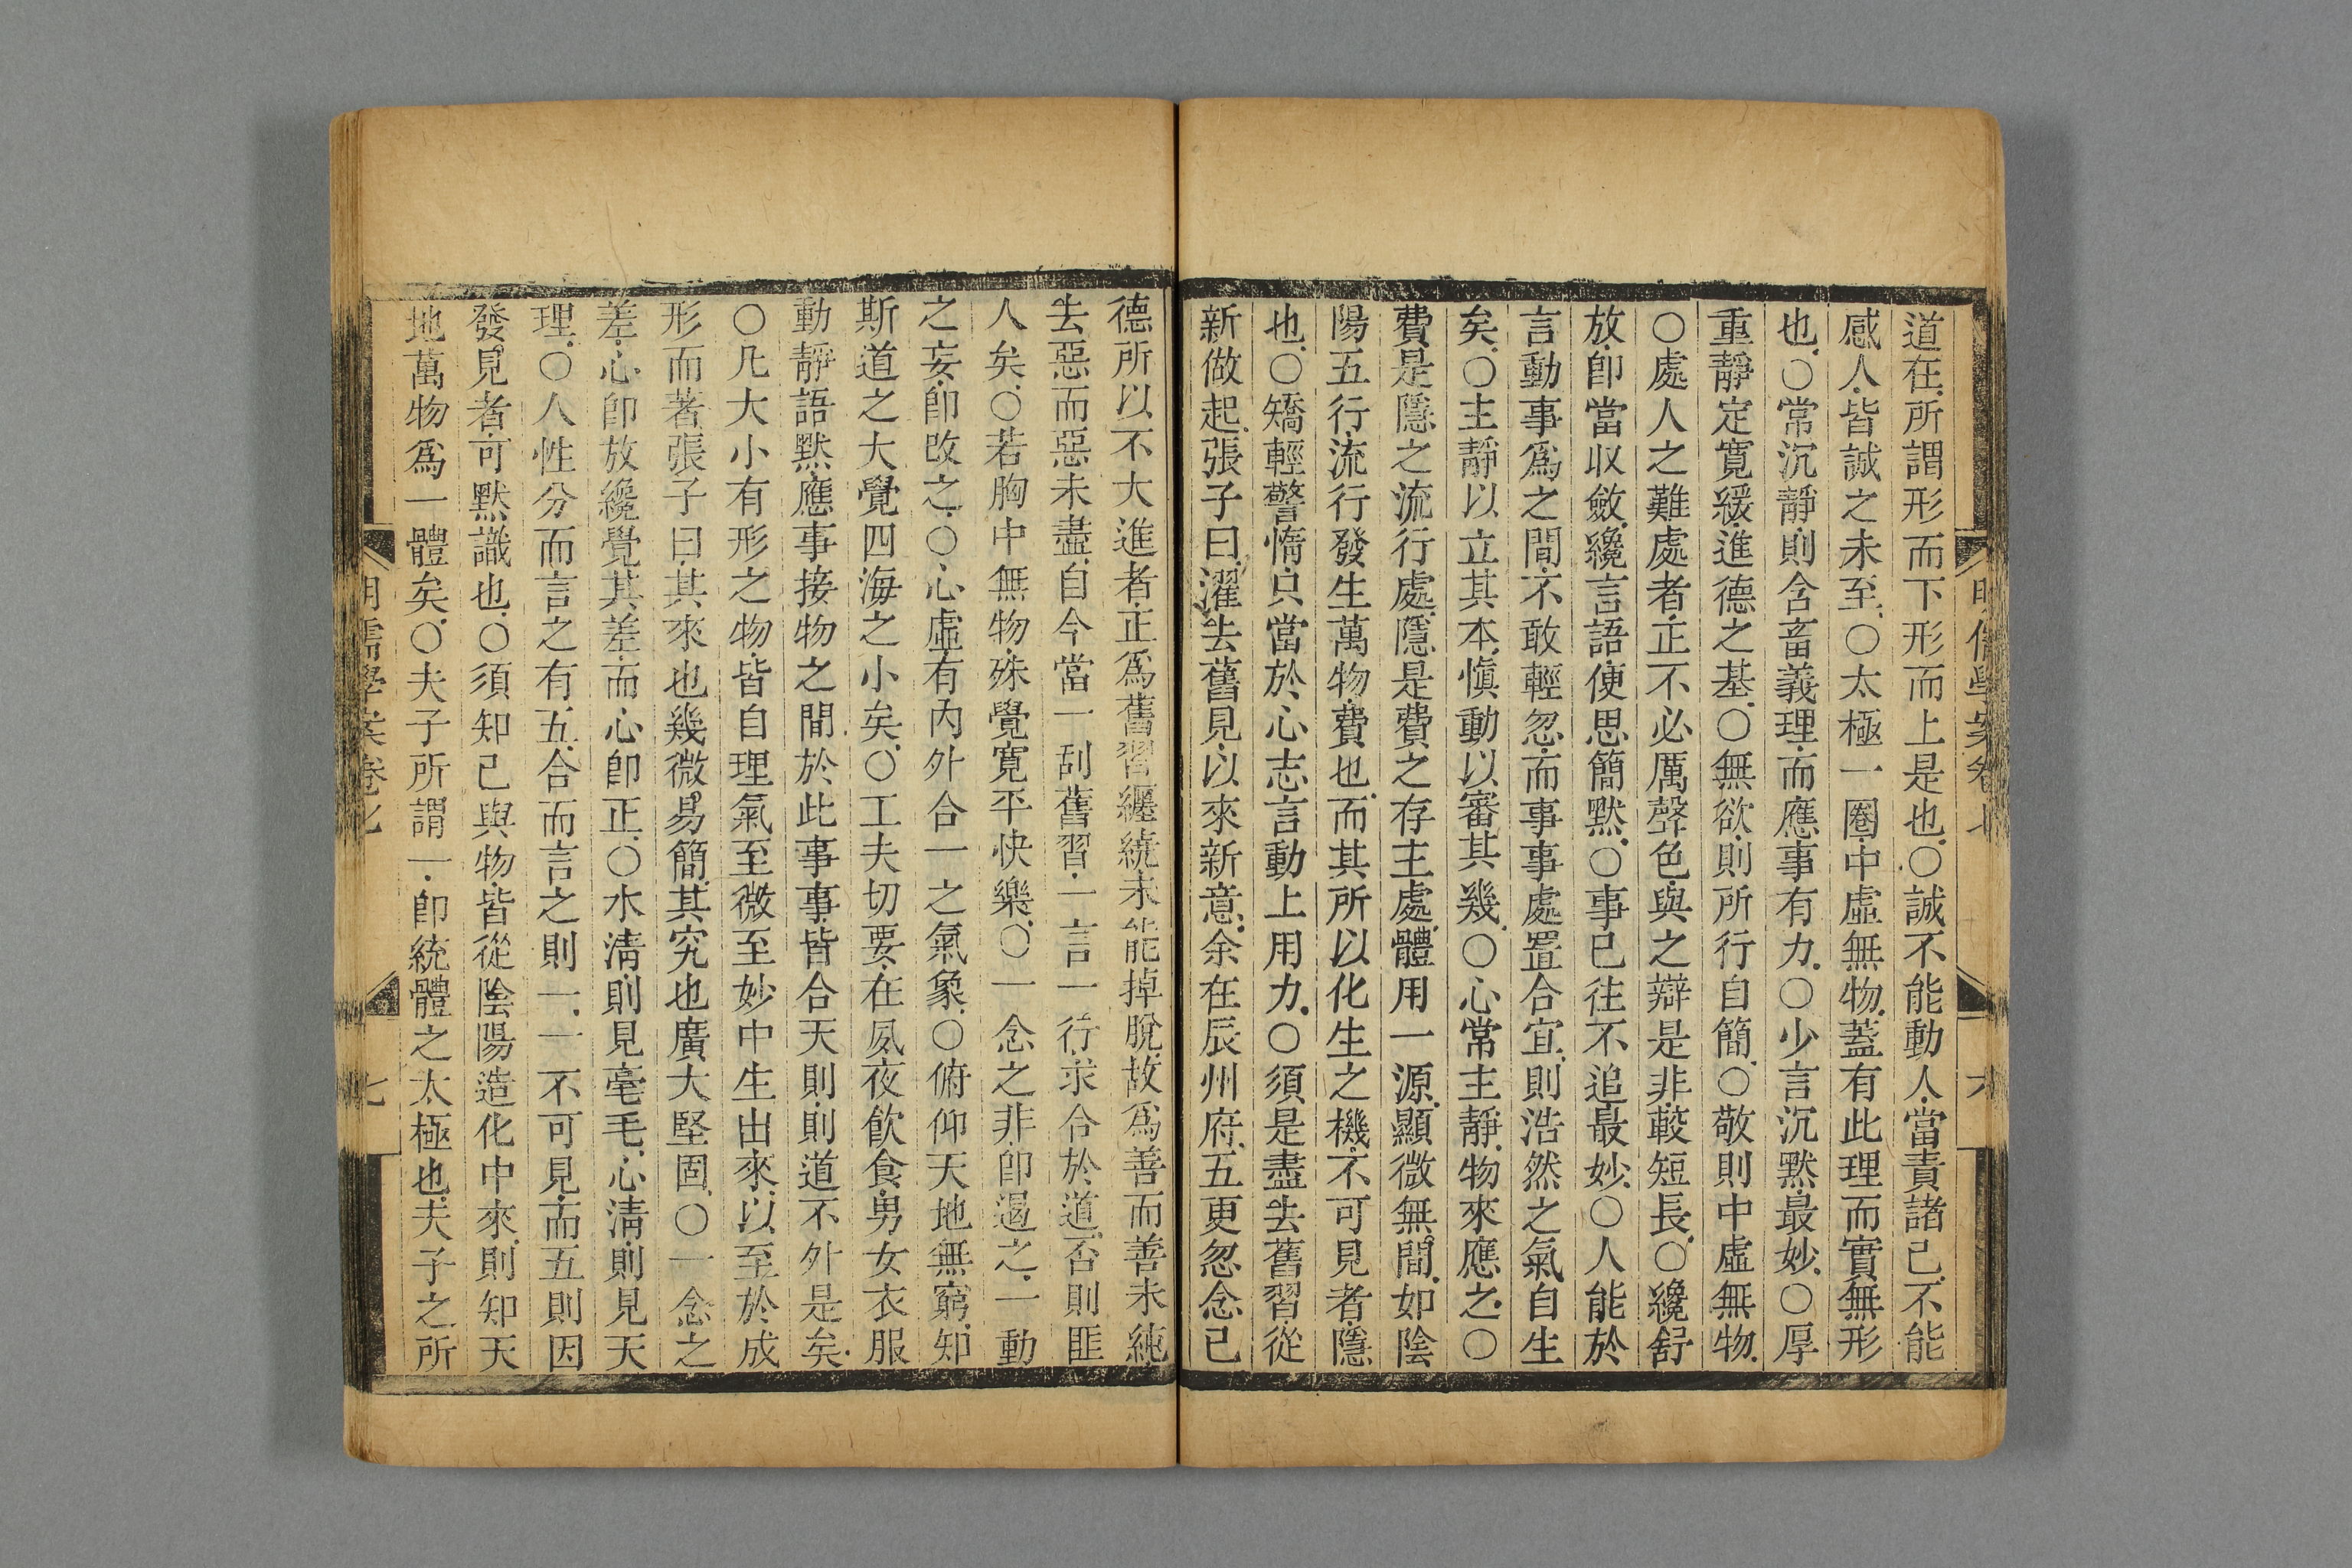 道在所謂形而下形而上是也○誠不能動人當責諸己不能
感人皆誠之未至○太極一圈中虛無物蓋有此理而實無形
也○常沉靜則含畜義理而應事有力○少言沉默最妙○厚
重靜定寬緩進德之基○無欲則所行自簡○敬則中虛無物
○處人之難處者正不必厲聲色與之辯是非較短長○纔舒
放卽當收斂纔言語便思簡默○事已往不追最妙○人能於
言動事爲之間不敢輕忽而事事處置合宜則浩然之氣自生
矣○主靜以立其本慎動以審其幾○心常主靜物來應之○
費是隱之流行處隱是費之存主處體用一源顯微無間如陰
陽五行流行發生萬物費也而其所以化生之機不可見者隱
也○矯輕警惰只當於心志言動上用力○須是盡去舊習從
新做起張子曰濯去舊見以來新意余在辰州府五更忽念已
德所以不大進者正爲舊習纏繞未能掉脫故爲善而善未純
去惡而惡未盡自今當一刮舊習一言一行求合於道否則匪
人矣○若胸中無物殊覺寬平快樂○一念之非卽遏之一動
之妄卽改之○心虛有內外合一之氣象○俯仰天地無窮知
斯道之大覺四海之小矣○工夫切要在夙夜飮食男女衣服
動靜語默應事接物之間於此事事皆合天則則道不外是矣
○凡大小有形之物皆自理氣至微至妙中生出來以至於成
形而著張子曰其來也幾微易簡其究也廣大堅固○一念之
差心卽放纔覺其差而心卽正○水淸則見毫毛心淸則見天
理○人性分而言之有五合而言之則一一不可見而五則因
發見者可默識也○須知己與物皆從陰陽造化中來則知天
地萬物爲一體矣○夫子所謂一卽統體之太極也夫子之所
明儒學案卷七
七